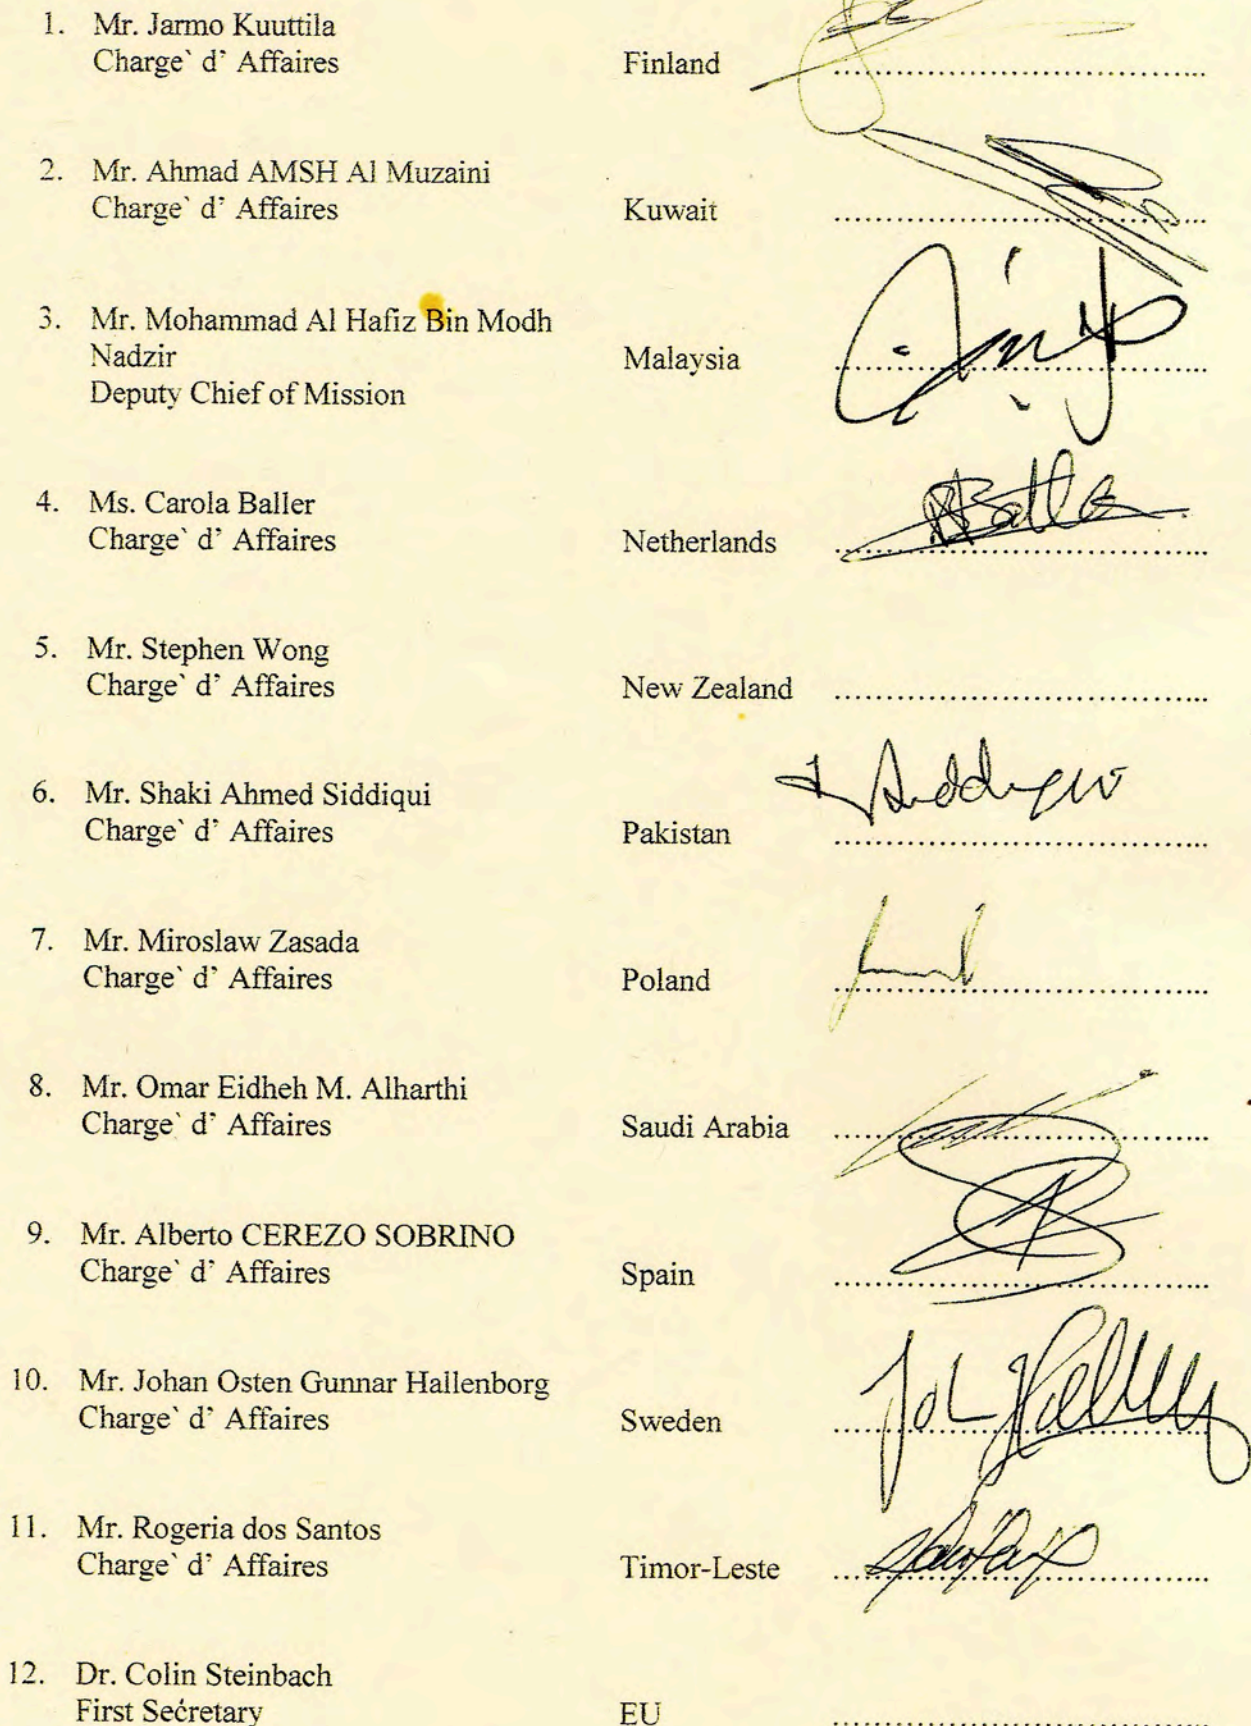 1. Mr. Jarmo Kuuttila
Charge` d' Affaires Finland ........................................
2. Mr. Ahmad AMSH Al Muzaini
Charge` d' Affaires Kuwait ........................................
3. Mr. Mohammad Al Hafiz Bin Modh
Nadzir Malaysia ........................................
Deputy Chief of Mission
4. Ms. Carola Baller
Charge` d' Affaires Netherlands ........................................
5. Mr. Stephen Wong
Charge` d' Affaires New Zealand ........................................
6. Mr. Shaki Ahmed Siddiqui
Charge` d' Affaires Pakistan ........................................
7. Mr. Miroslaw Zasada
Charge` d' Affaires Poland ........................................
8. Mr. Omar Eidheh M. Alharthi
Charge` d' Affaires Saudi Arabia ........................................
9. Mr. Alberto CEREZO SOBRINO
Charge` d' Affaires Spain ........................................
10. Mr. Johan Osten Gunnar Hallenborg
Charge` d' Affaires Sweden ........................................
11. Mr. Rogeria dos Santos
Charge` d' Affaires Timor-Leste ........................................
12. Dr. Colin Steinbach
First Secretary EU ........................................